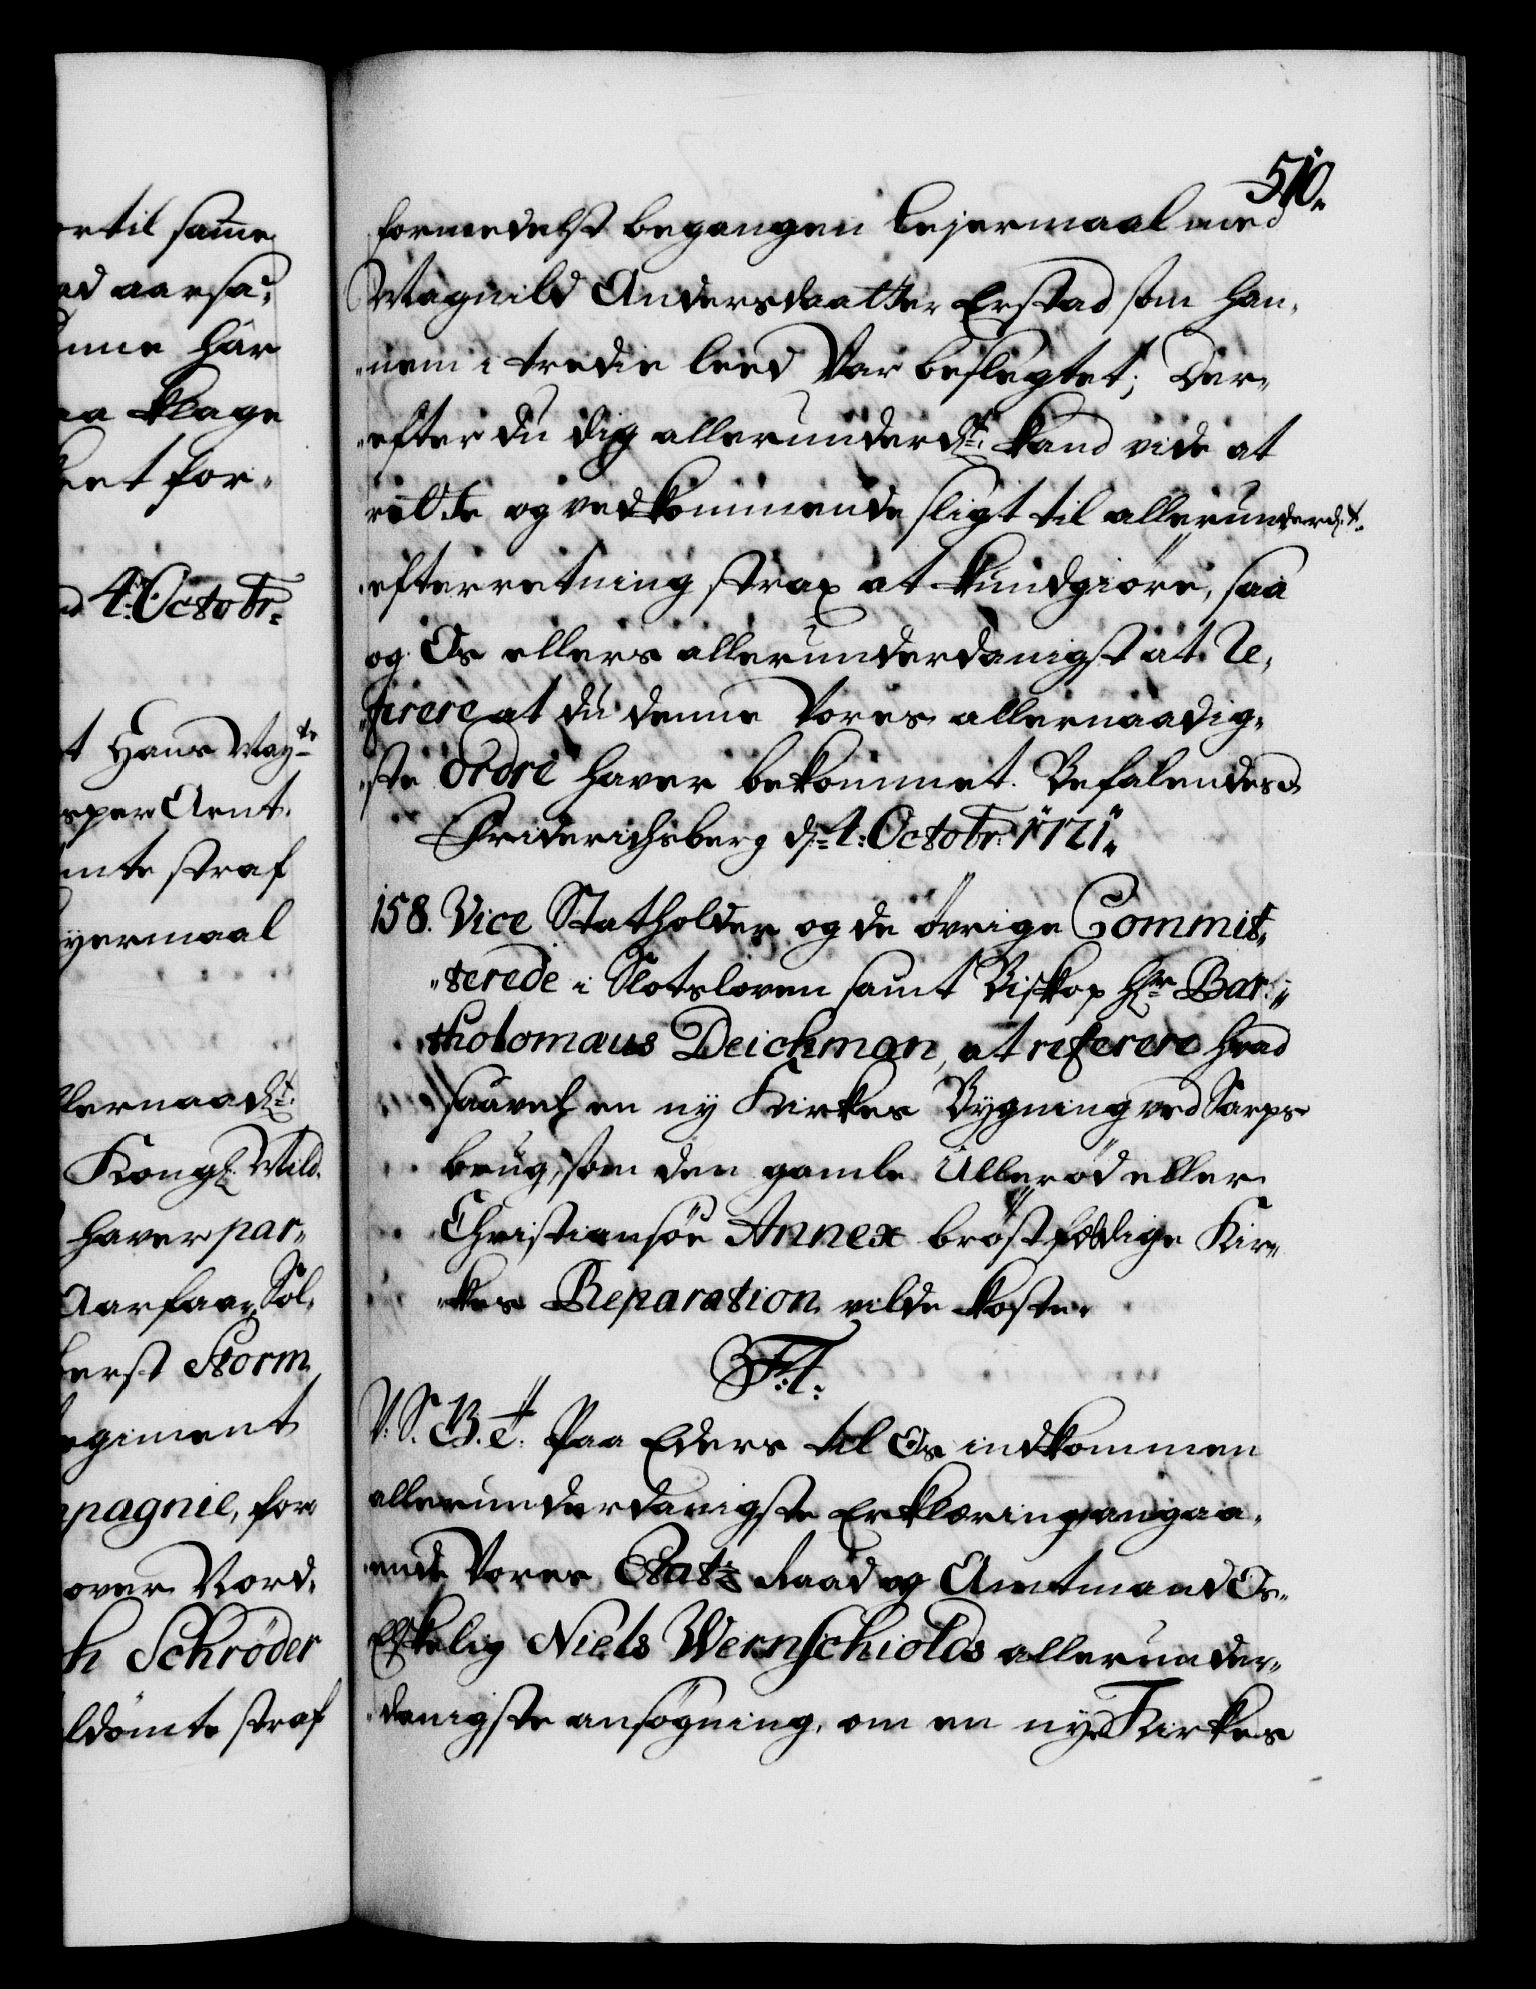 ertil samme
ad aarsa¬
inne här
aa klage
eet for¬
d 4: Octobr:
t Hans May:ts
sper Arnt.
mte straf
yermaal
llernaadst:
Kongl. Mild.
haver par¬
Aarsaar Sol¬
berst Storm
egiment
mpagnie, for
over Nord¬
h Schrøder
ldømte straf
510.
formedelst begangen lejermaal med
Magnild Andersdaatter Erstad som han¬
nem i tredie leed Var beslegtet; Der¬
efter du dig allerunderdst: kand vide at
rette og vedkommende sligt til allerunderd:st
efterretning strax at kundgiøre, saa
og Os ellers allerunderdanigst at Re¬
ferere at du denne Vores allernaadig¬
ste Ordre haver bekommet. Befalendes
Friderichsberg d: 4: Octobr: 1721.
158. Vice Statholder og de øvrige Commit¬
terede i Slotsloven samt Biskop Hr Bar¬
tholomæus Deichman, at referere hvad
saavel en ny Kirkes Bygning ved Sarps¬
brug, som den gamle Ullerød eller
Christiansøe Annex brøstfældige Kir¬
kes Reparation vilde koste.
F: 4:
V. S. B. et. Paa Eders til Os indkommen
allerunderdanigste Erklæring angaa¬
ende Vores Etatz Raad og Amtmand Os
Elskelig Niels Wernschiolds allerunder¬
danigste ansøgning, om en nye Kirkes